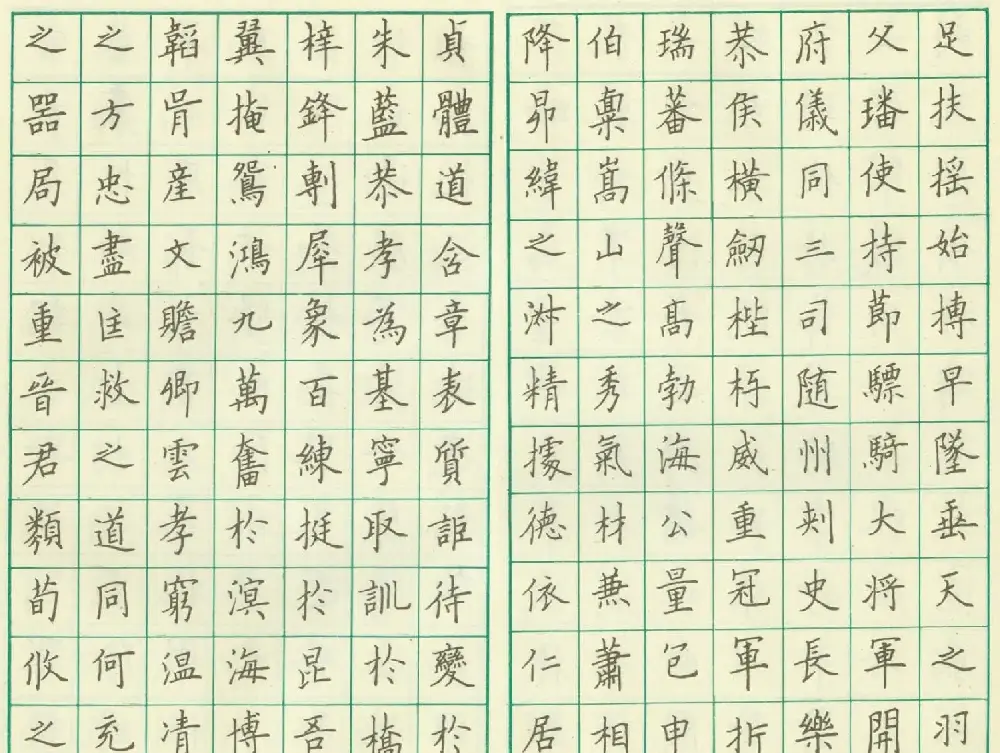 足扶搖始摶早墜垂天之羽
父璠使持節驃騎大將軍開
府儀同三司隨州刺史長樂
恭侯橫劒梐枑威重冠軍折
瑞蕃條聲高勃海公量包申
伯稟嵩山之秀氣材兼蕭相
降昴緯之淑精據德依仁居
貞體道含章表質詎待變於
朱藍恭孝為基寧取訓於橋
梓鋒剸犀象百練挺於昆吾
翼掩鴛鴻九萬奮於溟海博
韜胥產文贍卿雲孝窮温清
之方忠盡匡救之道同何充
之器局被重晉君類荀攸之